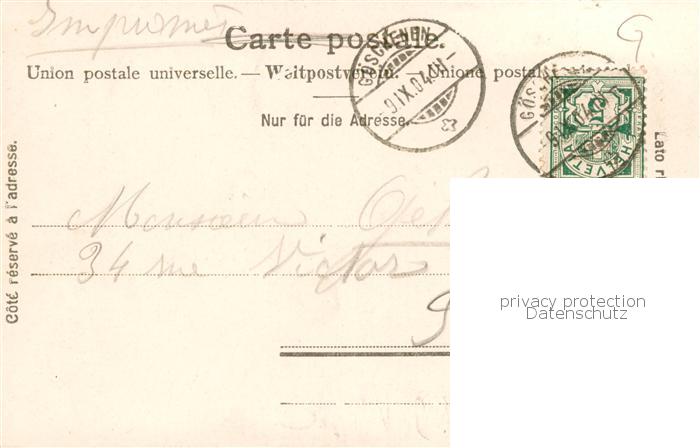 Imprimé
Carte postale.
Union postale universelle. — Weltpostverein. — Unione postale
Nur für die Adresse.
GÖSCHENEN
9.IX.04
GÖSCHENEN
HELVETIA
5
G
Côté réservé à l'adresse.
Lato ri
Monsieur
34 rue Victor
privacy protection
Datenschutz